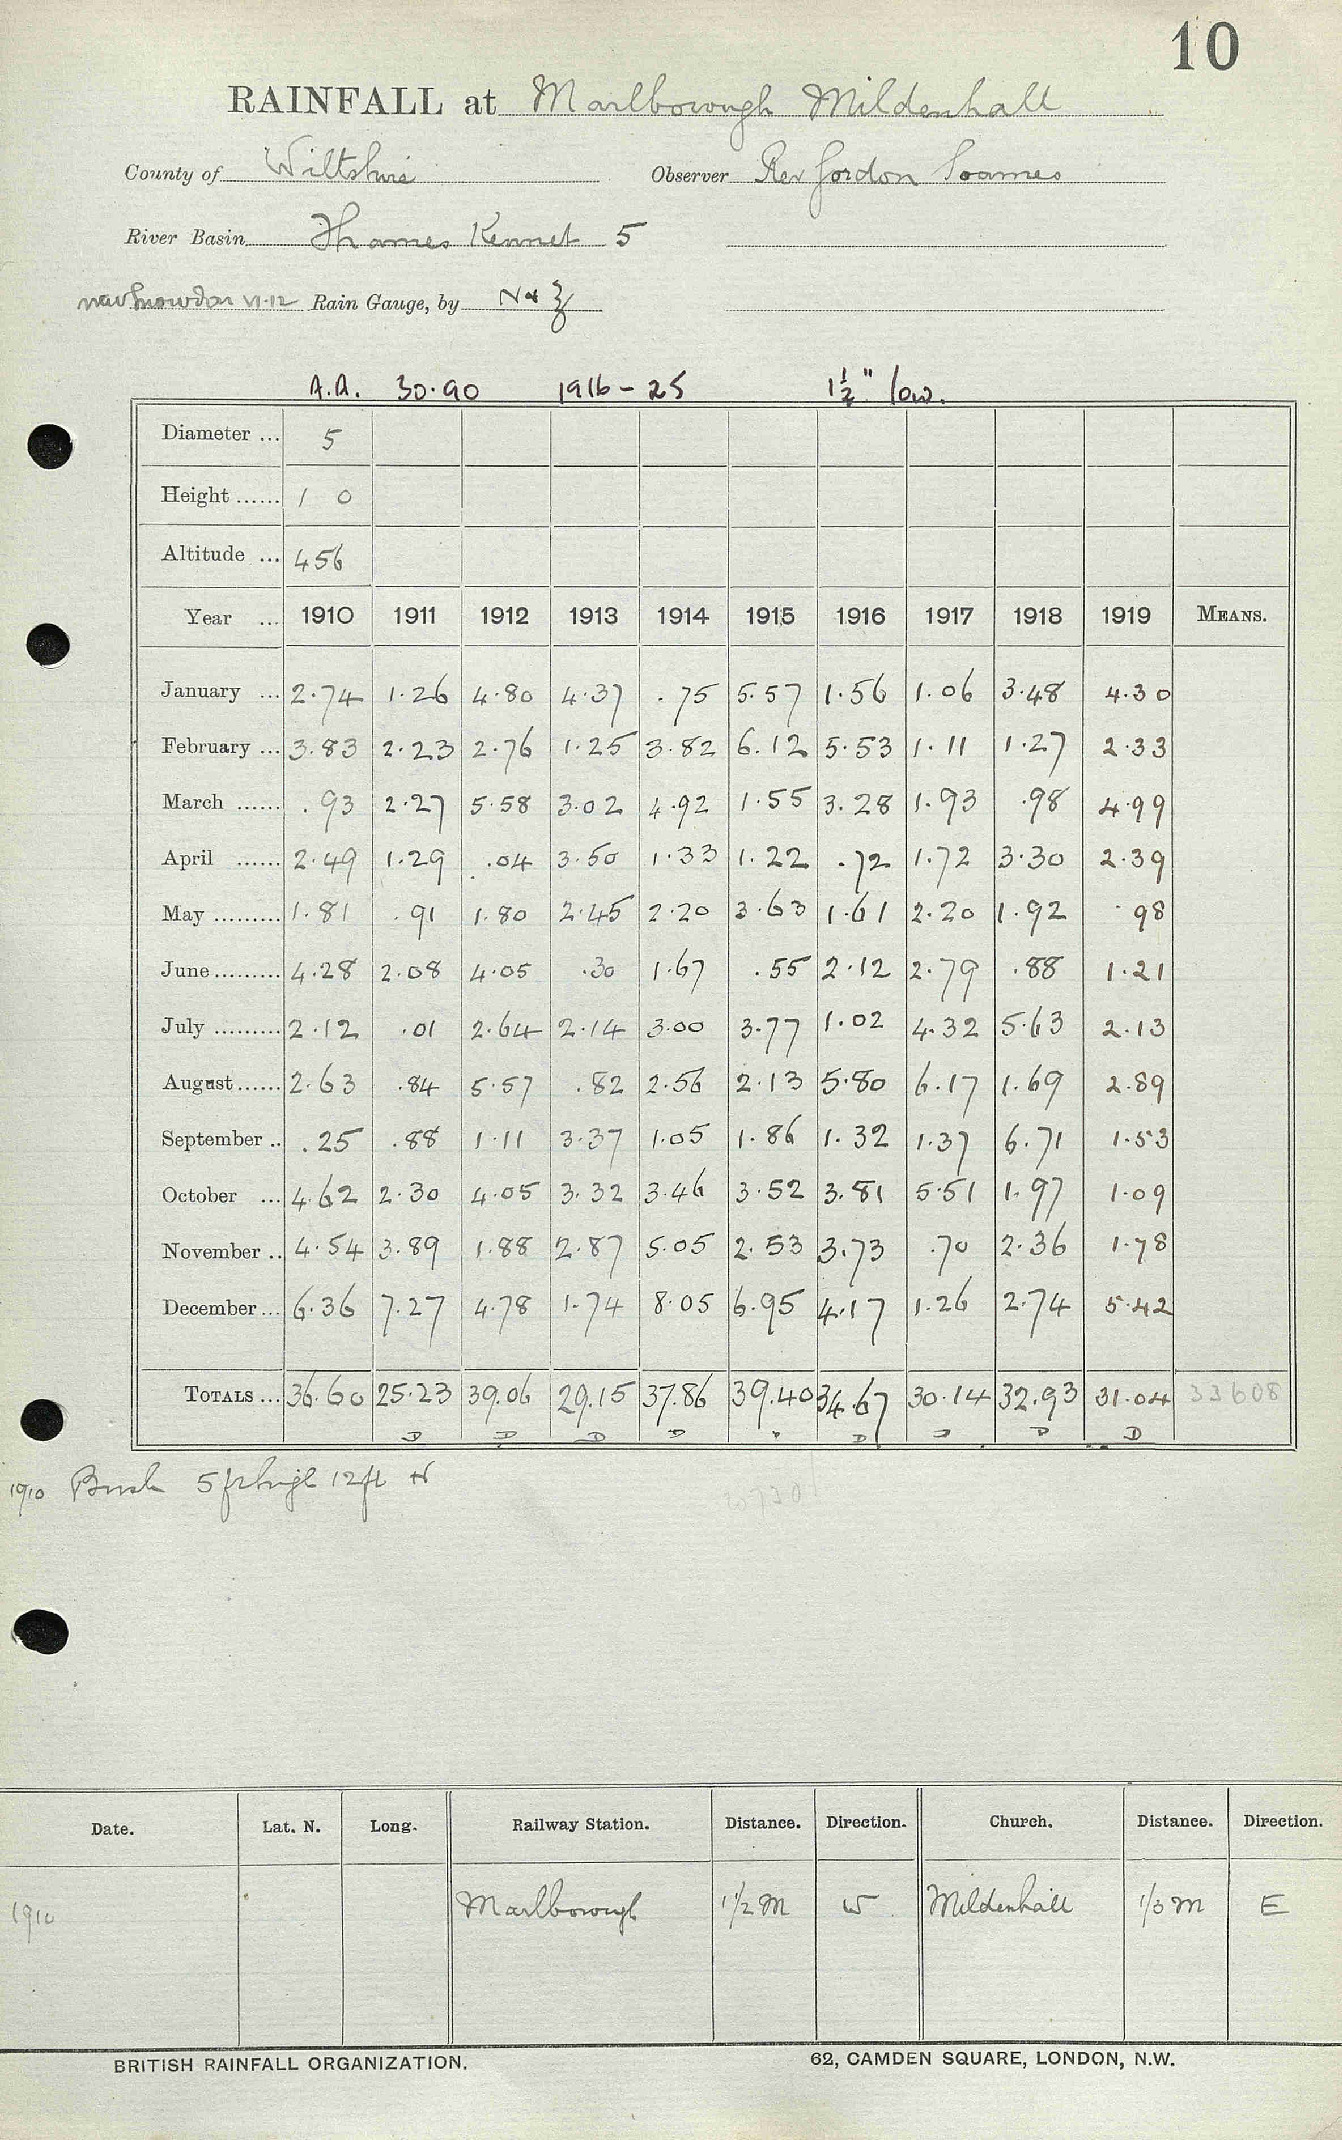 10
RAINFALL at Marlborough Mildenhall
County of Wiltshire Observer Rev Gordon Soames
River Basin Thames Kennet 5
new Snowdon VI.12 Rain Gauge, by N & Z
A.A. 30.90 1916-25 1½" low.
Diameter ... 5
Height ...... 1 0
Altitude ... 456
Year ... 1910 1911 1912 1913 1914 1915 1916 1917 1918 1919 MEANS.
January ... 2.74 1.26 4.80 4.37 .75 5.57 1.56 1.06 3.48 4.30
February ... 3.83 2.23 2.76 1.25 3.82 6.12 5.53 1.11 1.27 2.33
March ...... .93 2.27 5.58 3.02 4.92 1.55 3.28 1.93 .98 4.99
April ...... 2.49 1.29 .04 3.50 1.33 1.22 .72 1.72 3.30 2.39
May ......... 1.81 .91 1.80 2.45 2.20 3.63 1.61 2.20 1.92 .98
June ......... 4.28 2.08 4.05 .30 1.67 .55 2.12 2.79 .88 1.21
July ......... 2.12 .01 2.64 2.14 3.00 3.77 1.02 4.32 5.63 2.13
August ...... 2.63 .84 5.57 .82 2.56 2.13 5.80 6.17 1.69 2.89
September .. .25 .88 1.11 3.37 1.05 1.86 1.32 1.37 6.71 1.53
October ... 4.62 2.30 4.05 3.32 3.46 3.52 3.81 5.51 1.97 1.09
November .. 4.54 3.89 1.88 2.87 5.05 2.53 3.73 .70 2.36 1.78
December ... 6.36 7.27 4.78 1.74 8.05 6.95 4.17 1.26 2.74 5.42
TOTALS ... 36.60 25.23 39.06 29.15 37.86 39.40 34.67 30.14 32.93 31.04 33608
D D D D D D D D
1910 Bush 5 ft high 12 ft N
Date. Lat. N. Long. Railway Station. Distance. Direction. Church. Distance. Direction.
1910 Marlborough 1½ M W Mildenhall 1/3 M E
BRITISH RAINFALL ORGANIZATION. 62, CAMDEN SQUARE, LONDON, N.W.